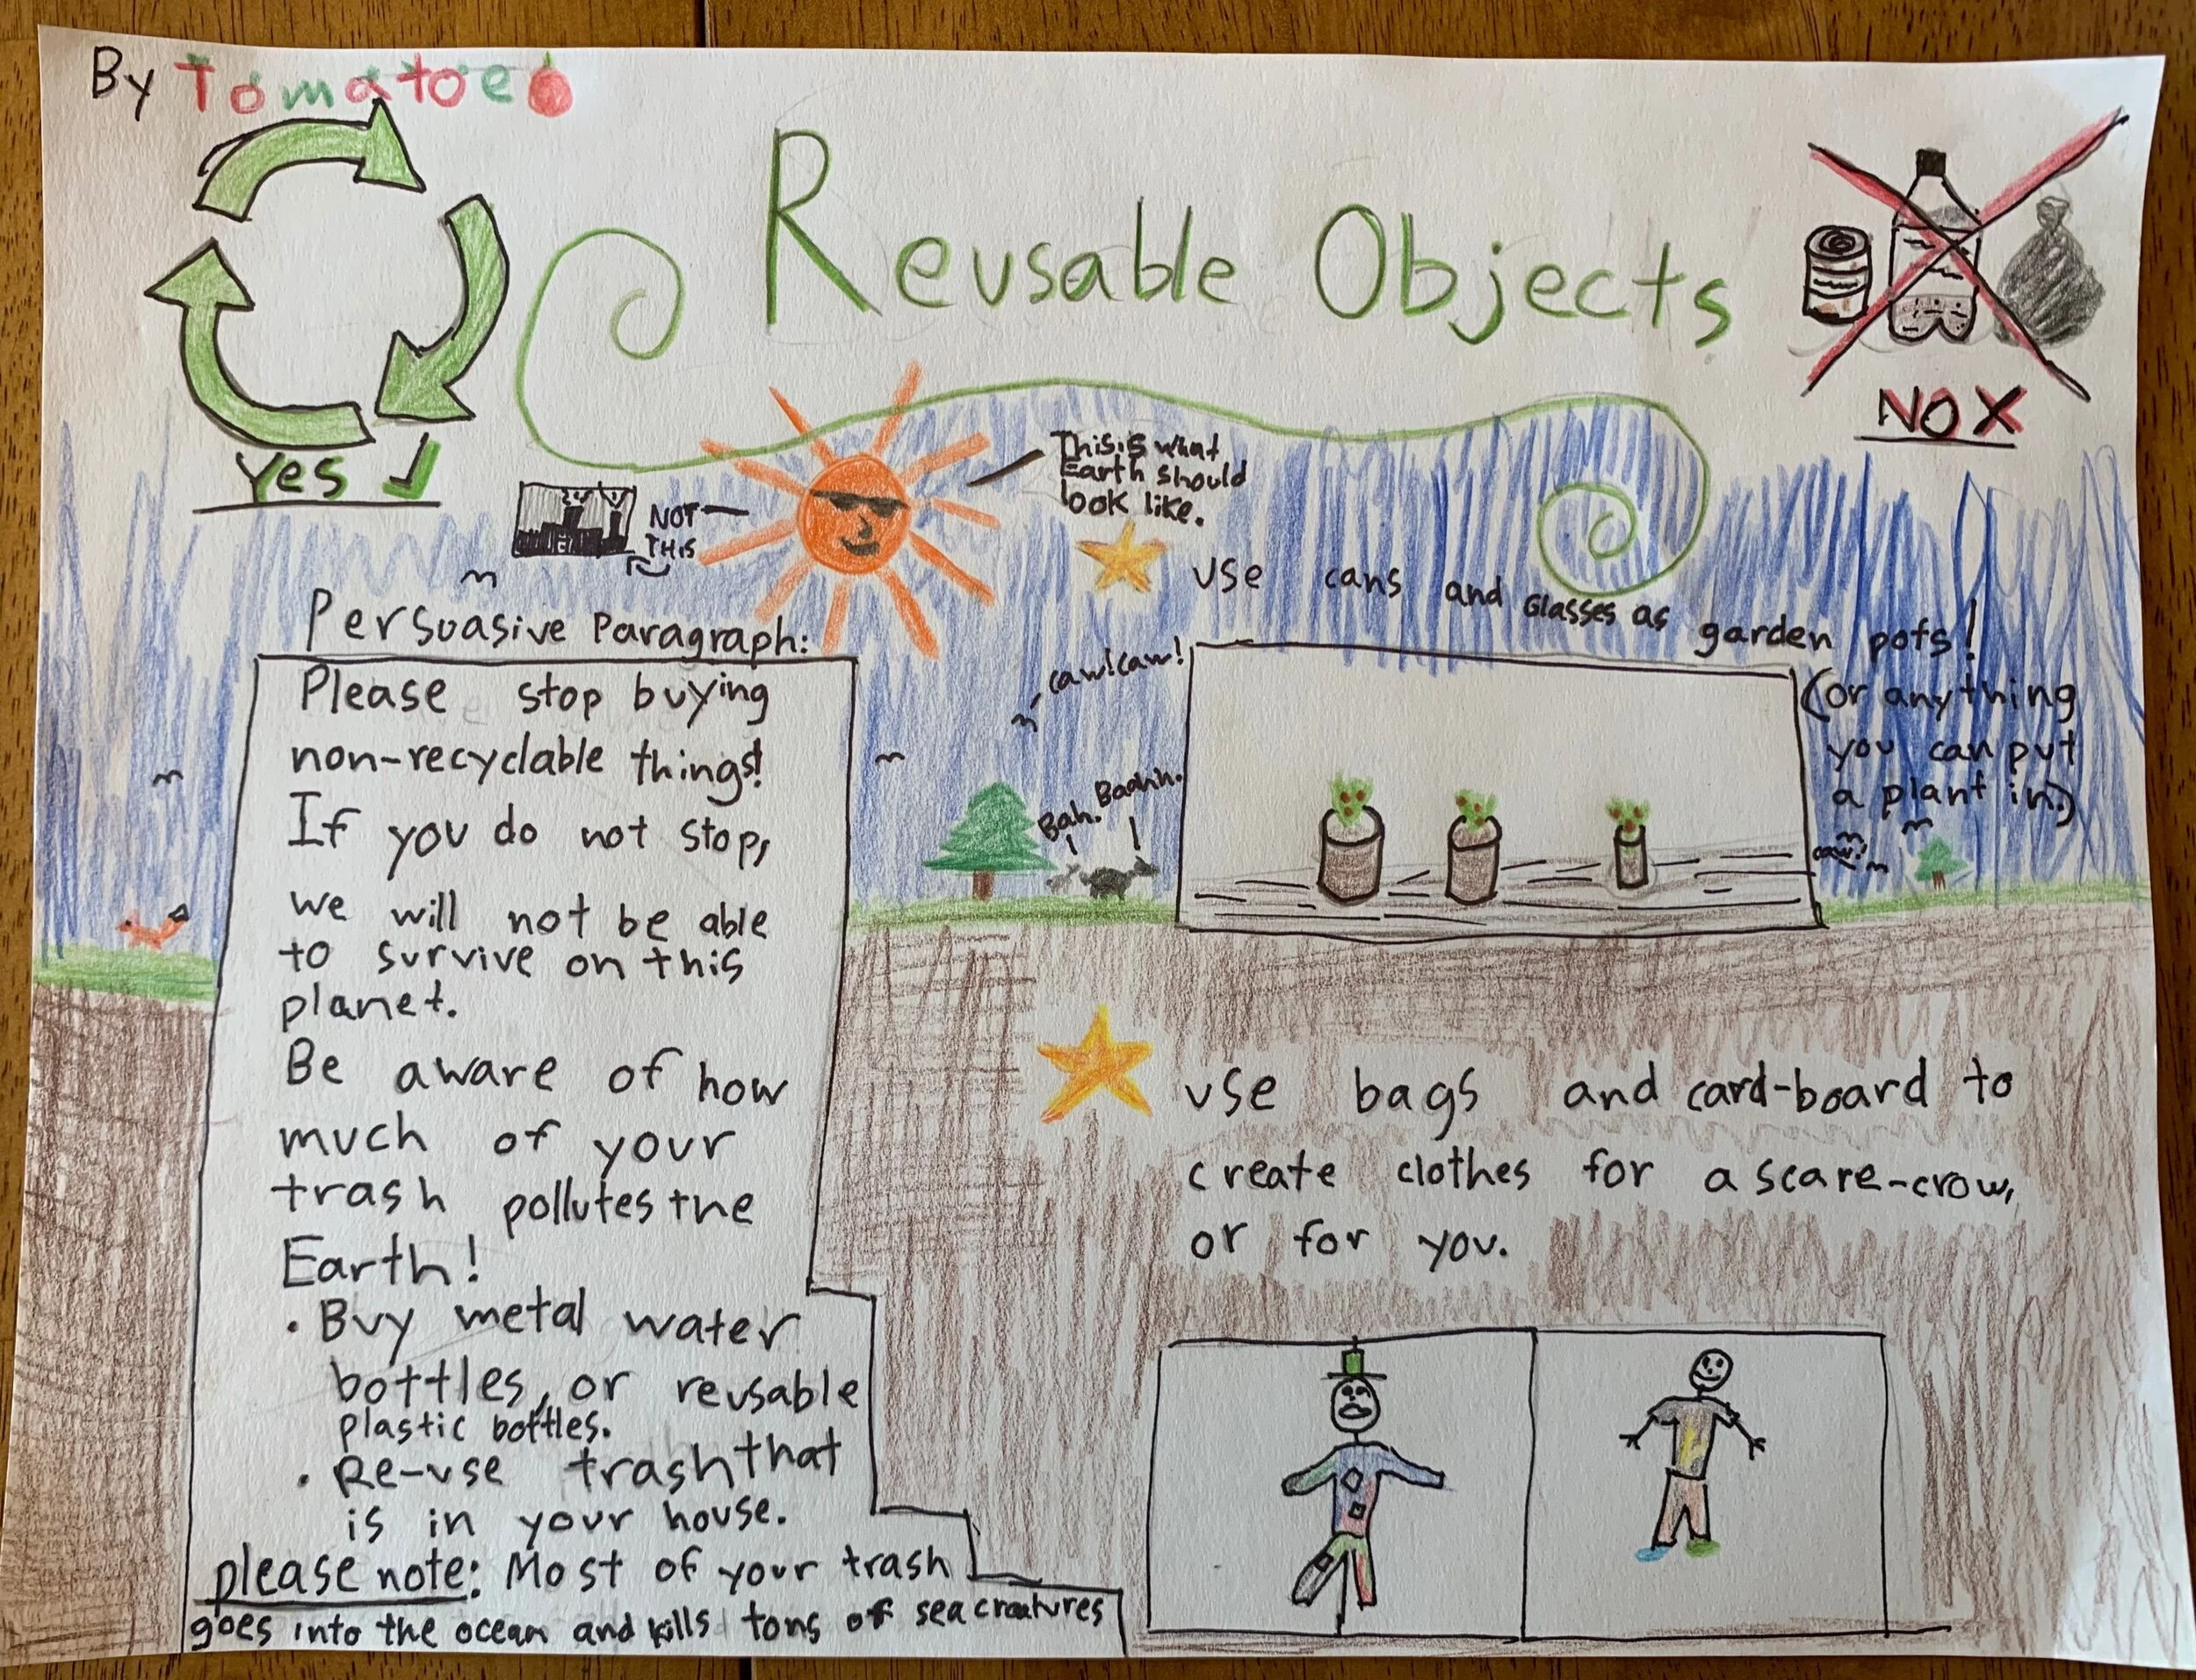 By Tomatoe
Reusable Objects
Yes ✓
NO X
This is what
Earth should
look like.
NOT
THIS
use cans and Glasses as garden pots!
(or anything
you can put
a plant in.)
caw!caw!
Bah. Baahh.
caw!
Persuasive Paragraph:
Please stop buying
non-recyclable things!
If you do not stop,
we will not be able
to survive on this
planet.
Be aware of how
much of your
trash pollutes the
Earth!
• Buy metal water
bottles, or reusable
plastic bottles.
• Re-use trash that
is in your house.
please note: Most of your trash
goes into the ocean and kills tons of sea creatures
use bags and card-board to
create clothes for a scare-crow,
or for you.